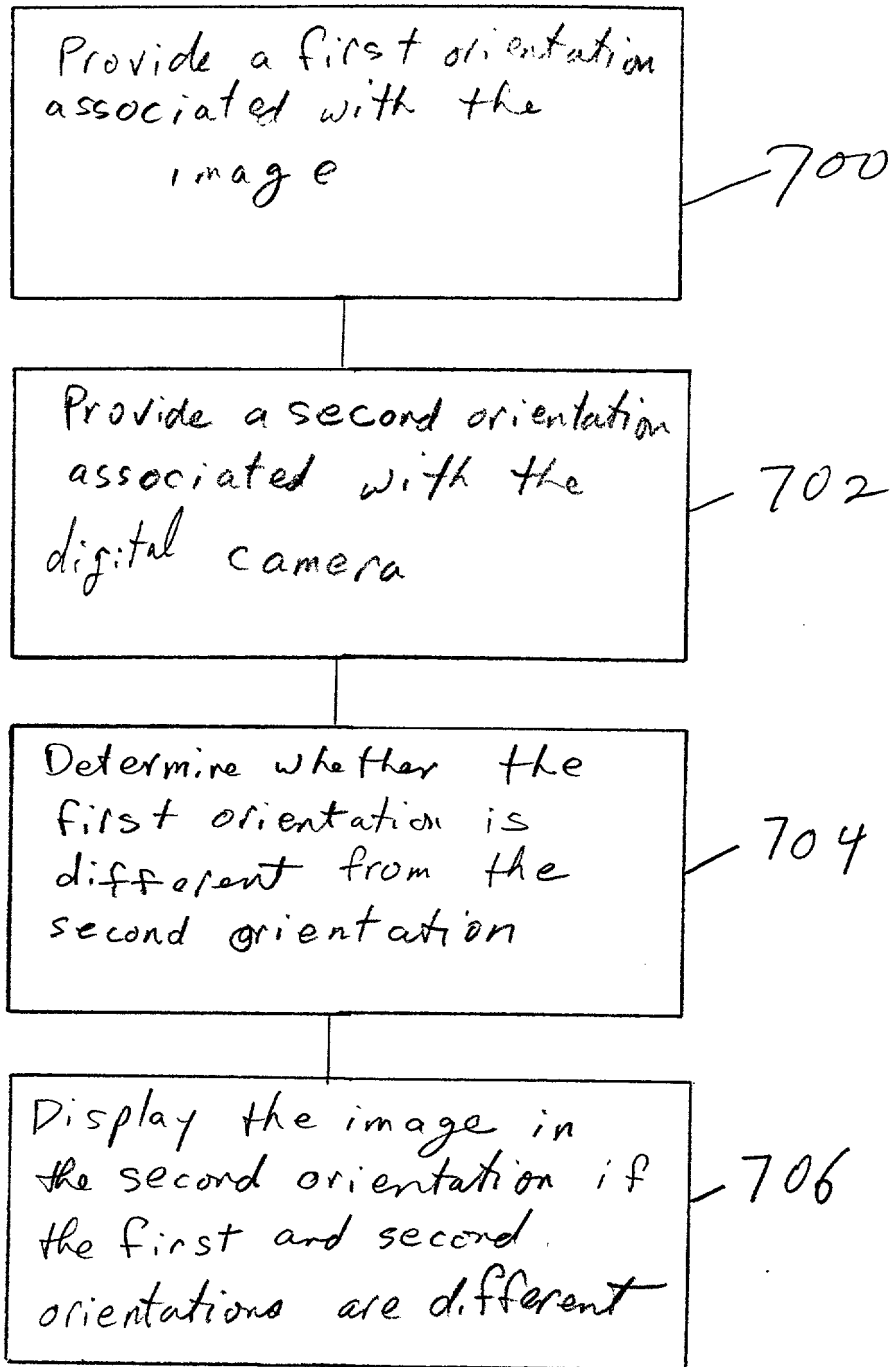 Provide a first orientation
associated with the
image
700
Provide a second orientation
associated with the
digital camera
702
Determine whether the
first orientation is
different from the
second orientation
704
Display the image in
the second orientation if
the first and second
orientations are different
706